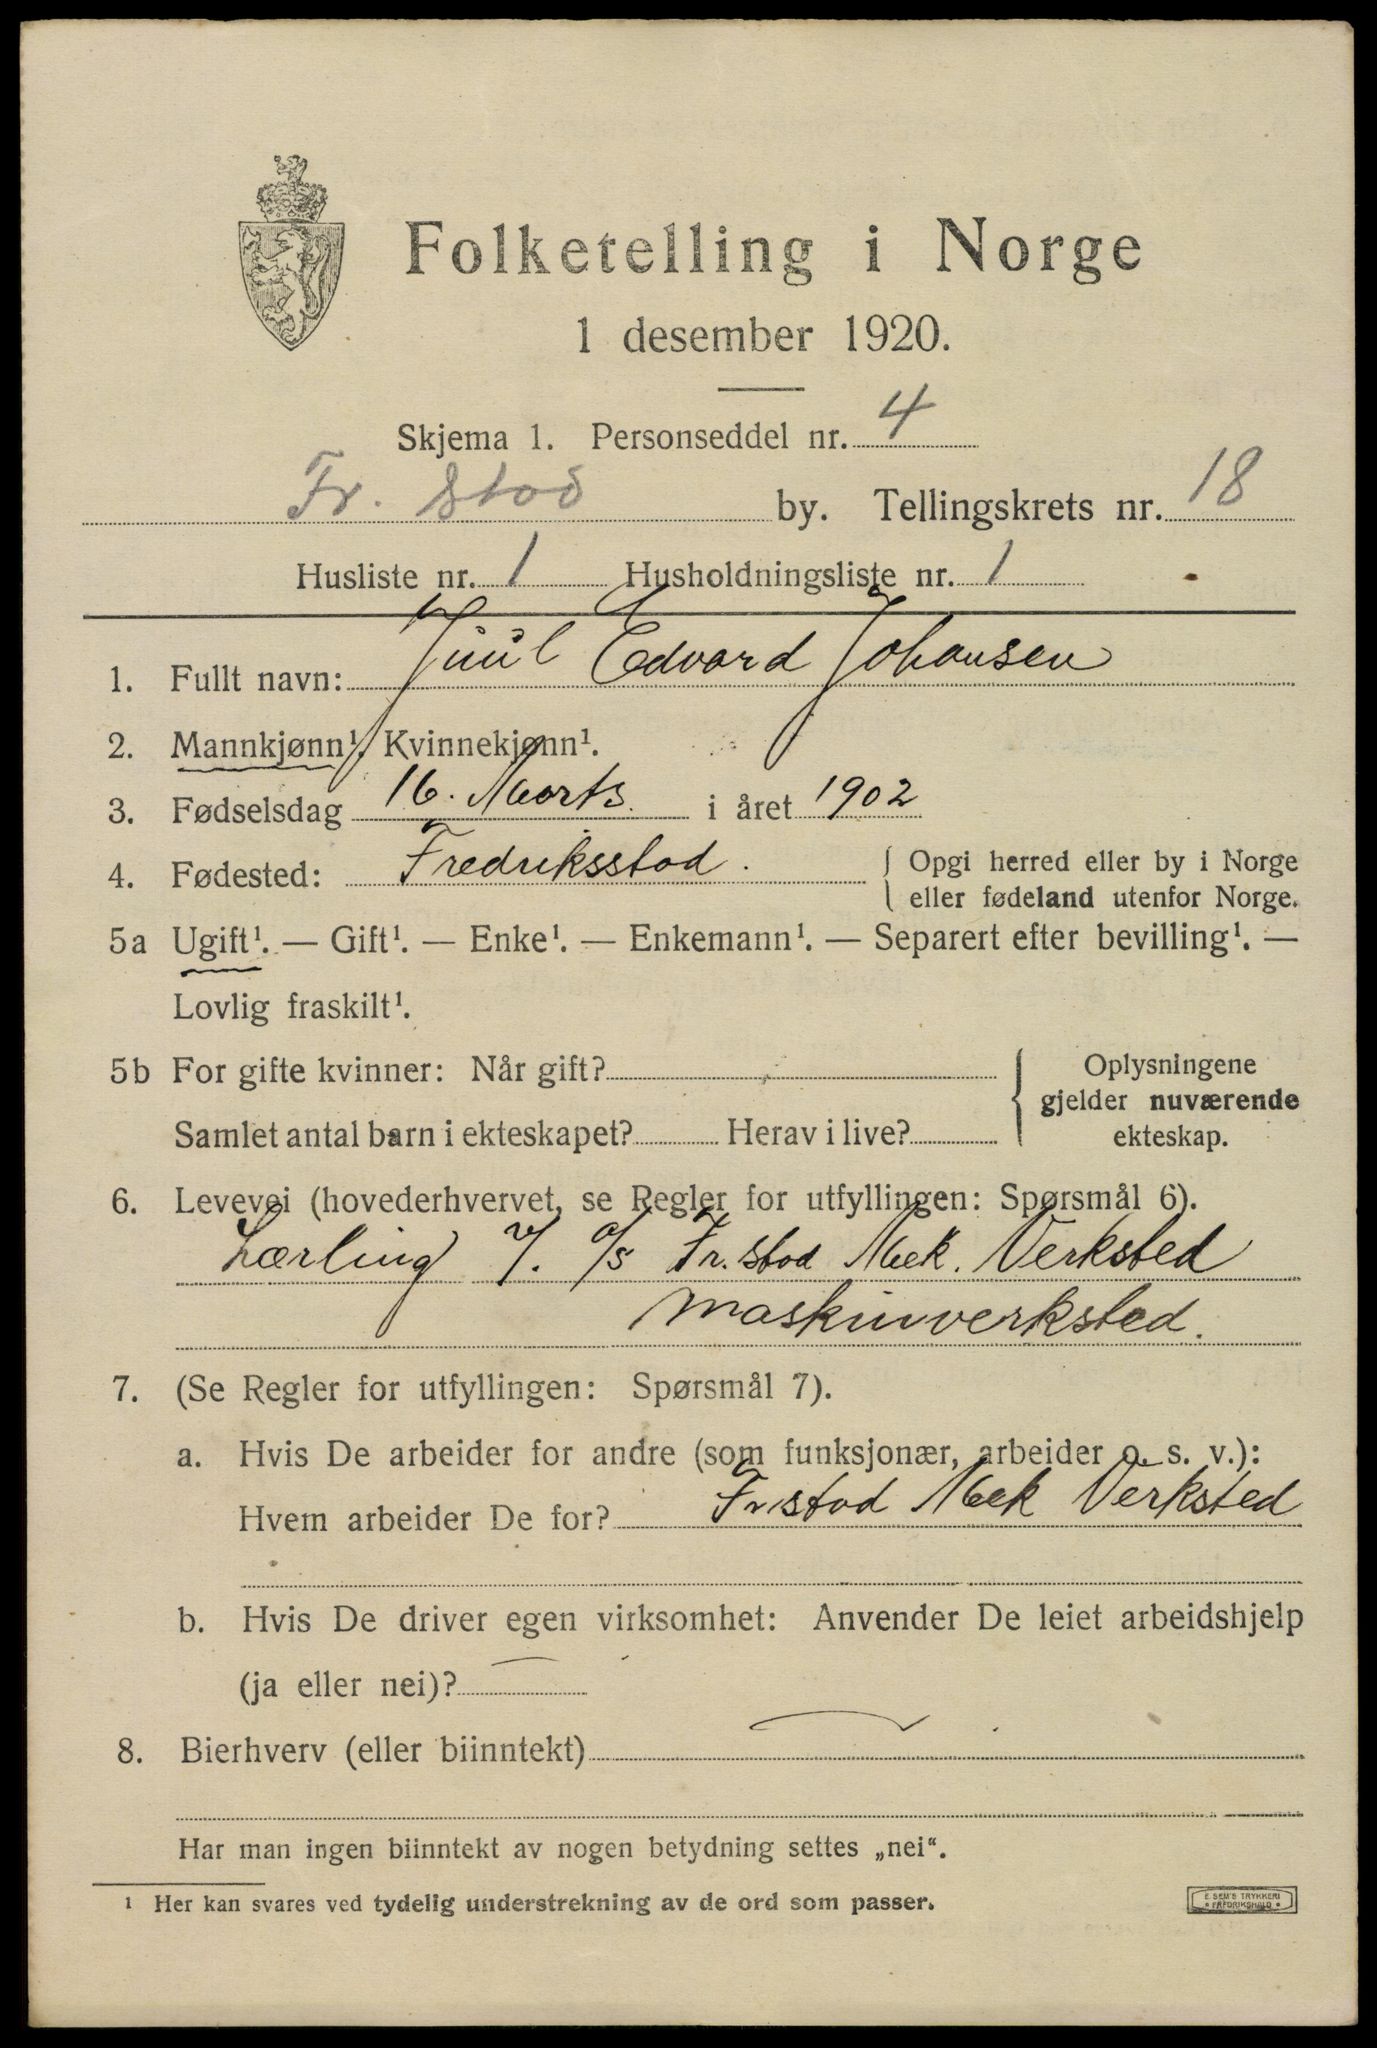 Folketelling i Norge
1 desember 1920.
Skjema 1. Personseddel nr. 4
Fr. stad by. Tellingskrets nr. 18
Husliste nr. 1 Husholdningsliste nr. 1
1. Fullt navn: Juul Edvard Johansen
2. Mannkjønn¹. Kvinnekjønn¹.
3. Fødselsdag 16. Marts. i året 1902
4. Fødested: Fredriksstad. { Opgi herred eller by i Norge
eller fødeland utenfor Norge.
5a Ugift¹. — Gift¹. — Enke¹. — Enkemann¹. — Separert efter bevilling¹. —
Lovlig fraskilt¹.
5b For gifte kvinner: Når gift? { Oplysningene
gjelder nuværende
Samlet antal barn i ekteskapet? Herav i live? ekteskap.
6. Levevei (hovederhvervet, se Regler for utfyllingen: Spørsmål 6).
Lærling v/. A/S Fr. stad Mek. Verksted
Maskinverksted.
7. (Se Regler for utfyllingen: Spørsmål 7).
a. Hvis De arbeider for andre (som funksjonær, arbeider o. s. v.):
Hvem arbeider De for? Fr stad Mek Verksted
b. Hvis De driver egen virksomhet: Anvender De leiet arbeidshjelp
(ja eller nei)? —
8. Bierhverv (eller biinntekt) —
Har man ingen biinntekt av nogen betydning settes „nei“.
¹ Her kan svares ved tydelig understrekning av de ord som passer.
E. SEM'S TRYKKERI
• FREDRIKSHALD •